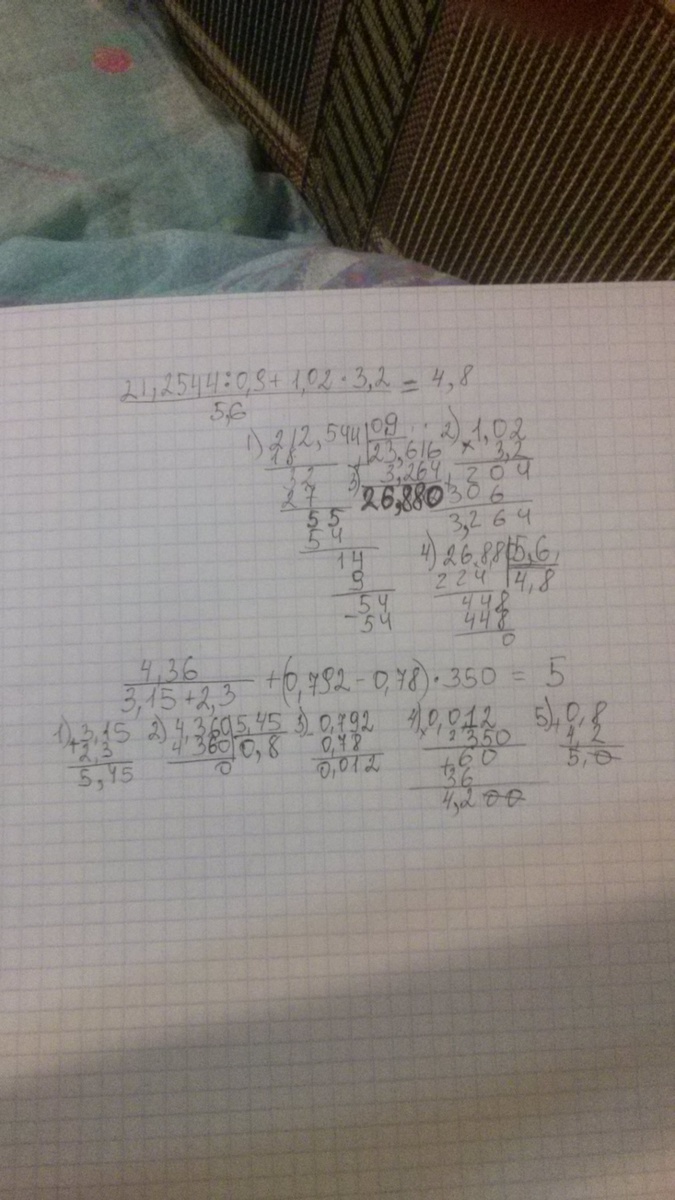 21,2544:0,9+1,02·3,2 = 4,8
5,6
1) 212,544 09 2) 1,02
18 23,616 × 3,2
32 3) 3,264 + 204
27 26,880 306
55 3,264
54
14 4) 26,88 5,6
9 224 4,8
54 448
- 54 448
0
4,36 + (0,792 - 0,78)·350 = 5
3,15+2,3
1) +3,15 2) 4,360 5,45 3) -0,792 4) 0,012 5) +0,8
2,3 4 360 0,8 0,78 × 350 4 2
5,45 0 0,012 + 60 5,0
36
4,200